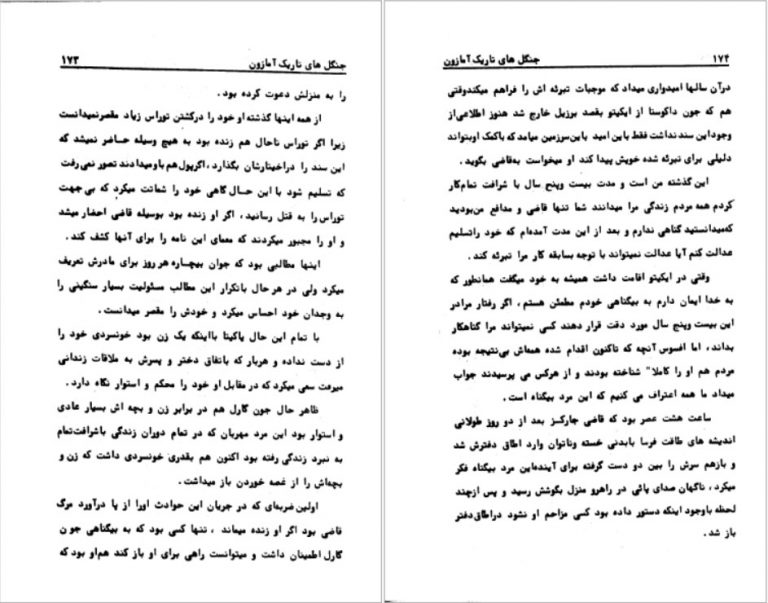 جنگل های تاریک آمازون ۱۷۳
را به منزلش دعوت کرده بود .
از همه اینها گذشته او خود را درکشتن توراس زیاد مقصرنمیدانست
زیرا اگر توراس تاحال هم زنده بود به هیچ وسیله حاضر نمیشد که
این سند را دراختیارشان بگذارد ، اگرپول هم باومیدادند تصور نمی رفت
که تسلیم شود با این حال گاهی خود را شماتت میکرد که بی جهت
توراس را به قتل رسانید ، اگر او زنده بود بوسیله قاضی احضار میشد
و او را مجبور میکردند که معمای این نامه را برای آنها کشف کند .
اینها مطالبی بود که جوان بیچاره هر روز برای مادرش تعریف
میکرد ولی در هر حال باتکرار این مطالب مسئولیت بسیار سنگینی را
به وجدان خود احساس میکرد و خودش را مقصر میدانست .
با تمام این حال یاکیتا بااینکه یک زن بود خونسردی خود را
از دست نداده و هربار که باتفاق دختر و پسرش به ملاقات زندانی
میرفت سعی میکرد که در مقابل او خود را محکم و استوار نگاه دارد .
ظاهر حال جون گارل هم در برابر زن و بچه اش بسیار عادی
و استوار بود این مرد مهربان که در تمام دوران زندگی باشرافت‌تمام
به نبرد زندگی رفته بود اکنون هم بقدری خونسردی داشت که زن و
بچه‌اش را از غصه خوردن باز میداشت .
اولین ضربه‌ای که در جریان این حوادث اورا از پا درآورد مرگ
قاضی بود اگر او زنده میماند ، تنها کسی بود که به بیگناهی جون
گارل اطمینان داشت و میتوانست راهی برای او باز کند هم‌او بود که
۱۷۴ جنگل های تاریک آمازون
درآن سالها امیدواری میداد که موجبات تبرئه اش را فراهم میکندوقتی
هم که جون داکوستا از ایکیتو بقصد برزیل خارج شد هنوز اطلاعی‌از
وجوداین سند نداشت فقط با این امید باین‌سرزمین میامد که باکمک اوبتواند
دلیلی برای تبرئه شده خویش پیدا کند او میخواست به‌قاضی بگوید .
این گذشته من است و مدت بیست وپنج سال با شرافت تمام‌کار
کردم همه مردم زندگی مرا میدانند شما تنها قاضی و مدافع من‌بودید
که‌میدانستید گناهی ندارم و بعد از این مدت آمده‌ام که خود راتسلیم
عدالت کنم آیا عدالت نمیتواند با توجه بسابقه کار مرا تبرئه کند .
وقتی در ایکیتو اقامت داشت همیشه به خود میگفت همانطور که
به خدا ایمان دارم به بیگناهی خودم مطمئن هستم ، اگر رفتار مرادر
این بیست وپنج سال مورد دقت قرار دهند کسی نمیتواند مرا گناهکار
بداند ، اما افسوس آنچه که تاکنون اقدام شده همه‌اش بی‌نتیجه بوده
مردم هم او را کاملا" شناخته بودند و از هرکس می پرسیدند جواب
میداد ما همه اعتراف می کنیم که این مرد بیگناه است .
ساعت هشت عصر بود که قاضی جارکز بعد از دو روز طولانی
اندیشه های طاقت فرسا بابدنی خسته وناتوان وارد اطاق دفترش شد
و بازهم سرش را بین دو دست گرفته برای آینده‌این مرد بیگناه فکر
میکرد ، ناگهان صدای پائی در راهرو منزل بگوشش رسید و پس ازچند
لحظه باوجود اینکه دستور داده بود کسی مزاحم او نشود دراطاق‌دفتر
باز شد .